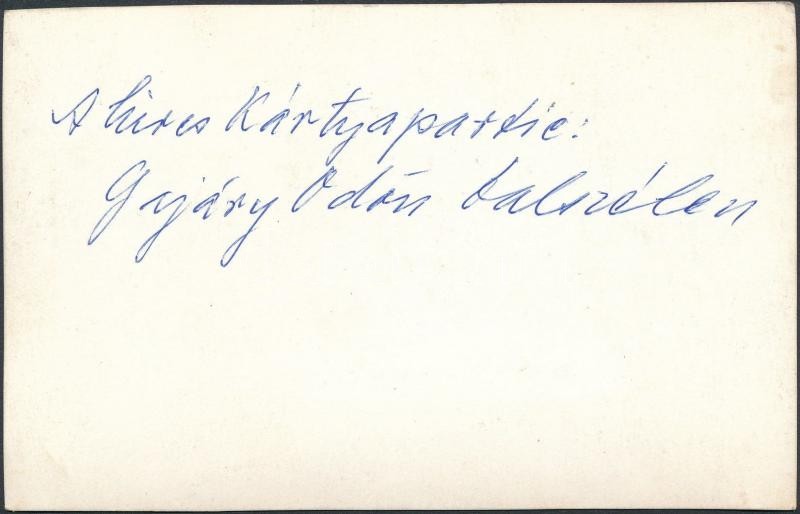 A híres Kártyaparti:
Gajáry Ödön balszélen